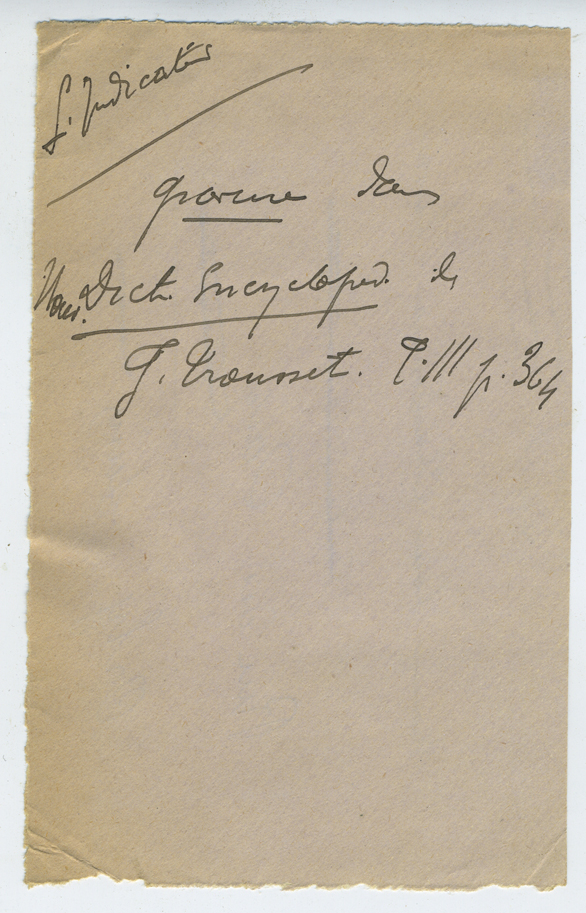 S. Indicator
gravure dans
Nouv. Dict. Encycloped. de
J. Trousset. T. III p. 364